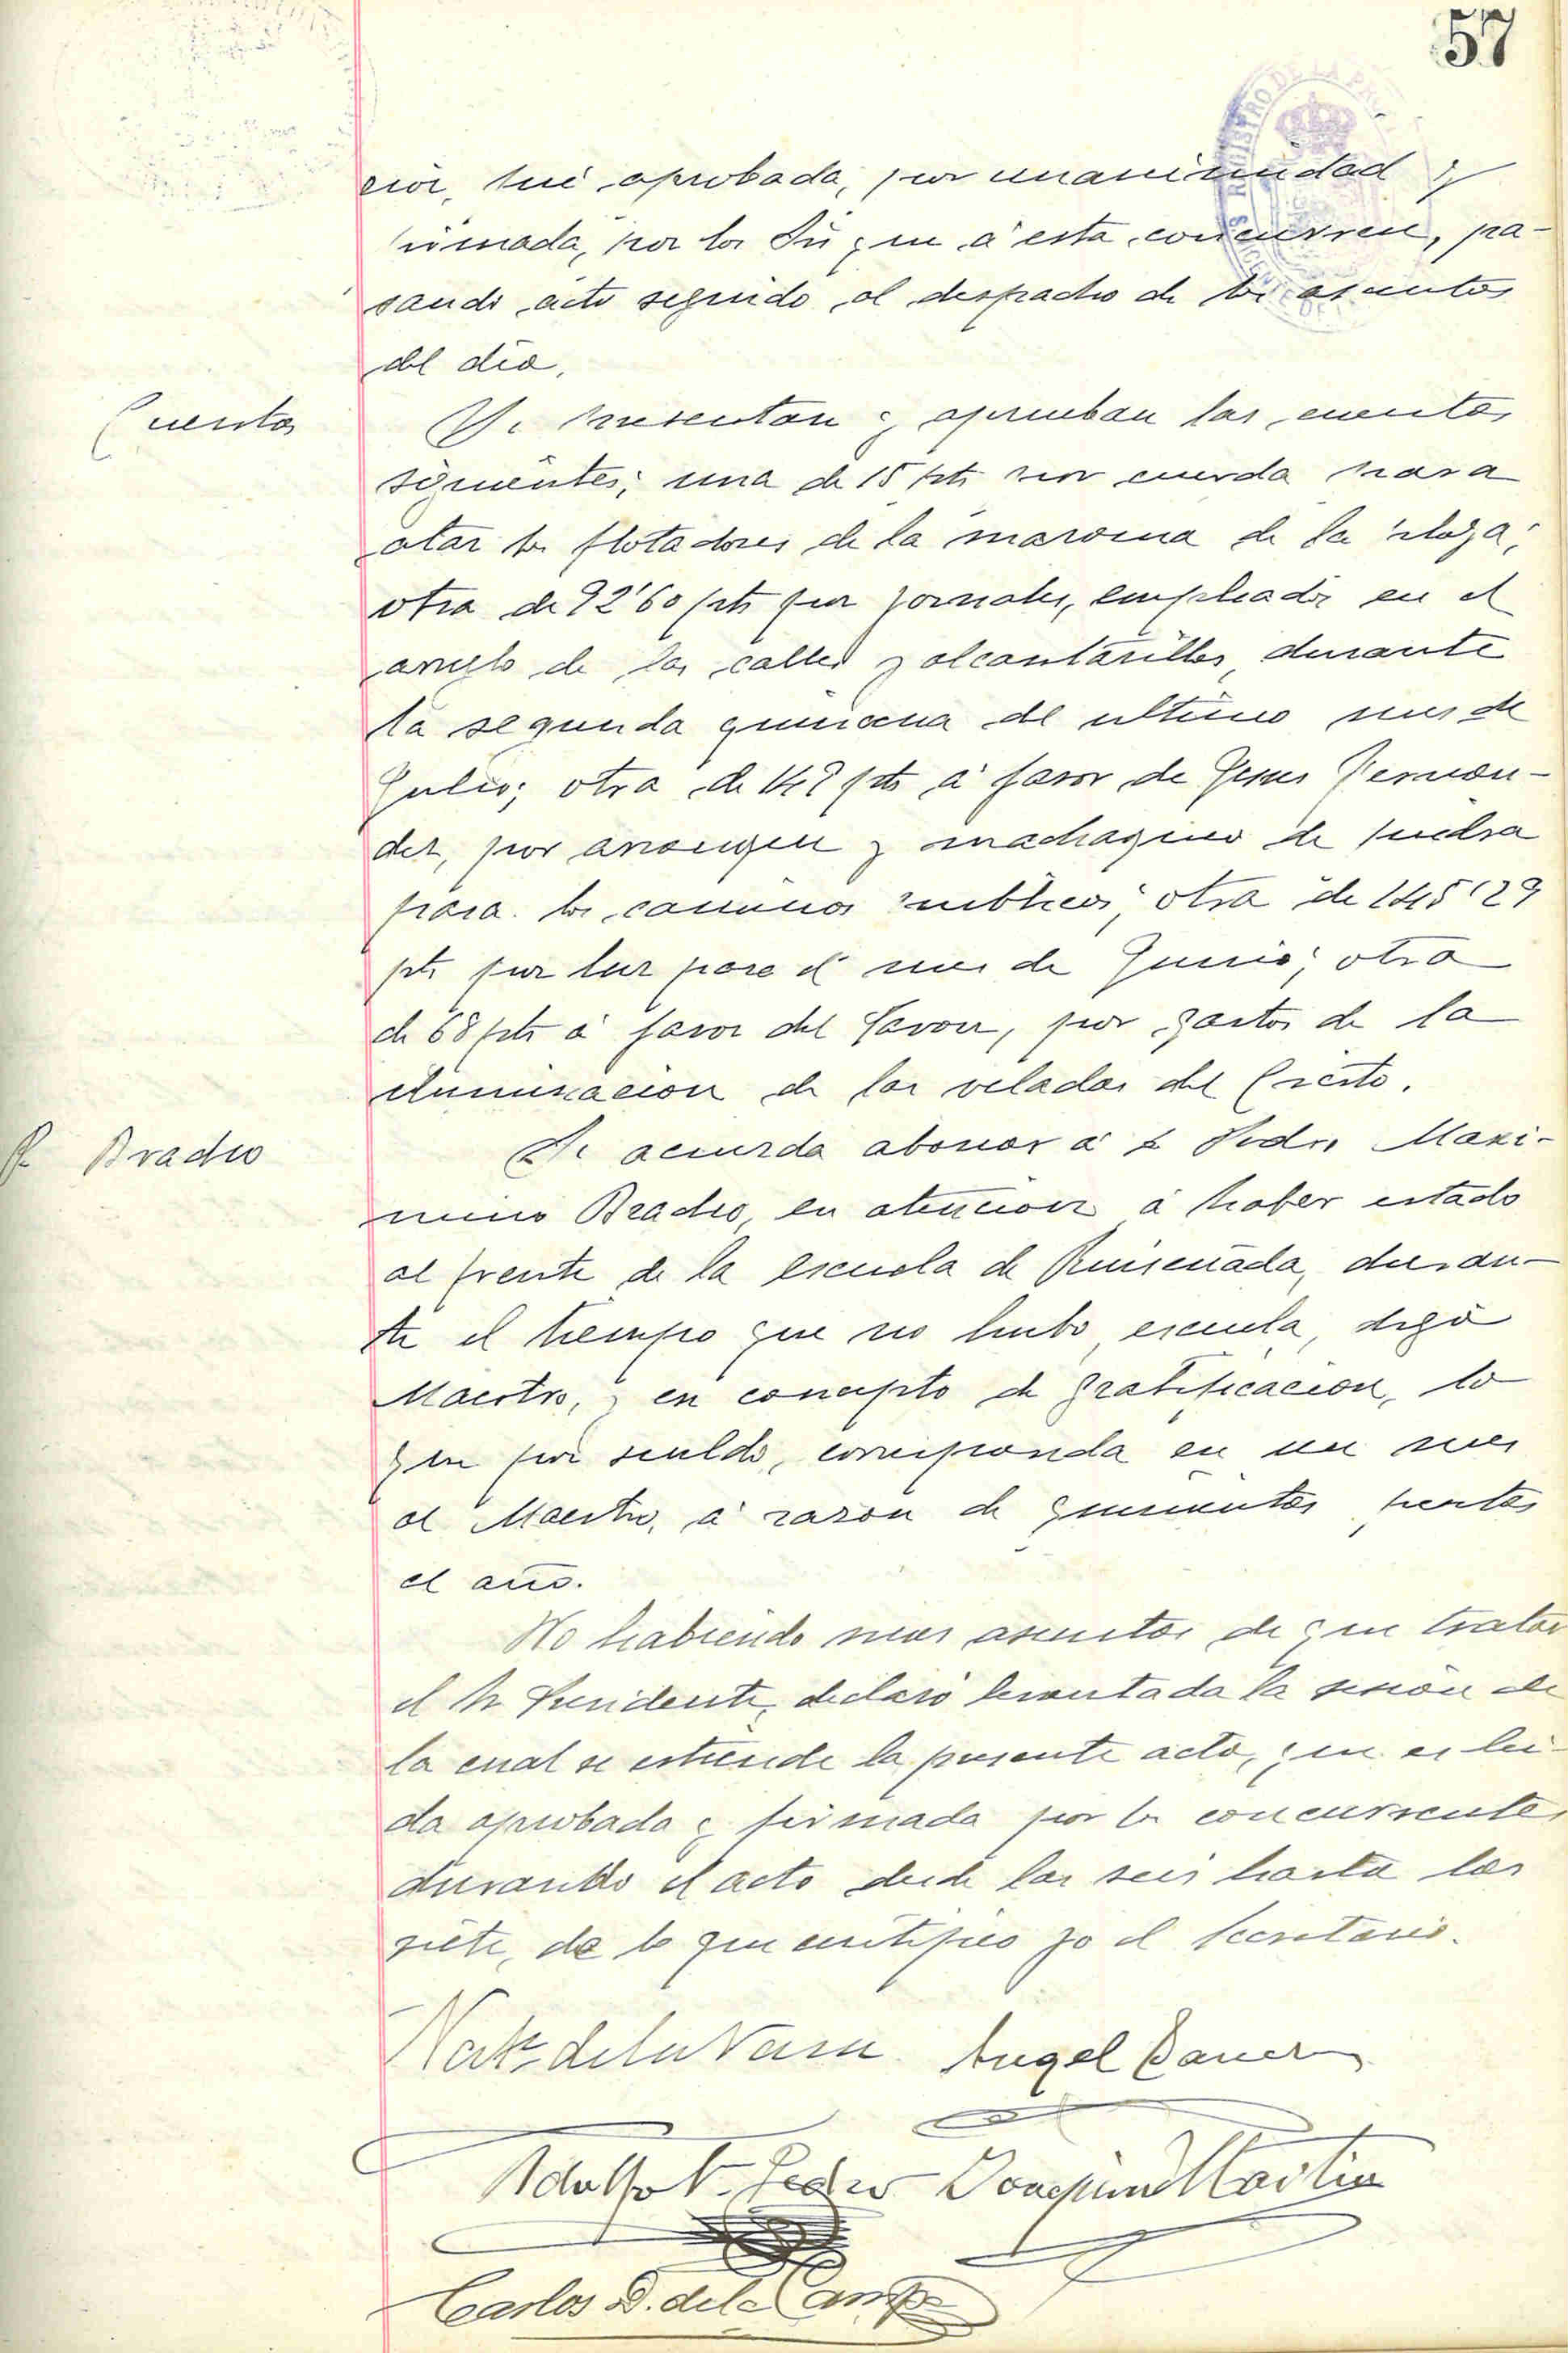 57
cion, fué aprobada, por unanimidad y
firmada, por los Srs que á esta concurren, pa-
sando acto seguido al despacho de los asuntos
del dia.
Cuentas
Se presentan y aprueban las cuentas
siguientes; una de 15 pts por cuerda para
atar los flotadores de la maroma de la playa;
otra de 92'60 pts por jornales, empleados en el
arreglo de las calles y alcantarillas, durante
la segunda quincena del ultimo mes de
Julio; otra de 142 pts á favor de Jesus Fernan-
dez, por arranque y machaqueo de piedra
para los caminos publicos; otra de 145'29
pts por luz para el mes de Junio; otra
de 68 pts á favor del Savon, por gastos de la
iluminacion de las veladas del Cristo.
P. Bracho
Se acuerda abonar á D. Pedro Maxi-
mino Bracho, en atencion á haber estado
al frente de la escuela de Ruiseñada, duran-
te el tiempo que no hubo escuela, digo
Maestro, y en concepto de gratificacion, lo
que por sueldo, corresponda en un mes
al Maestro, á razon de quinientas pesetas
el año.
No habiendo mas asuntos de que tratar
el Sr Presidente, declaró levantada la sesion de
la cual se estiende la presente acta, que es lei-
da aprobada y firmada por los concurrentes
durando el acto desde las seis hasta las
siete, de lo que certifico yo el Secretario.
de la
Angel
Adolfo V. Pedro Joaquin Martin
Carlos D. de la Campa